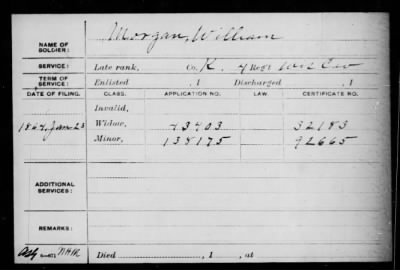 NAME OF SOLDIER: Morgan, William
SERVICE: Late rank, Co. K. 4 Reg't Wis Cav
TERM OF SERVICE: Enlisted , 1 Discharged , 1
DATE OF FILING. CLASS. APPLICATION NO. LAW. CERTIFICATE NO.
Invalid,
1864, Jan 23 Widow, 43403 32183
Minor, 138175 92665
ADDITIONAL SERVICES:
REMARKS:
Died , 1 , at